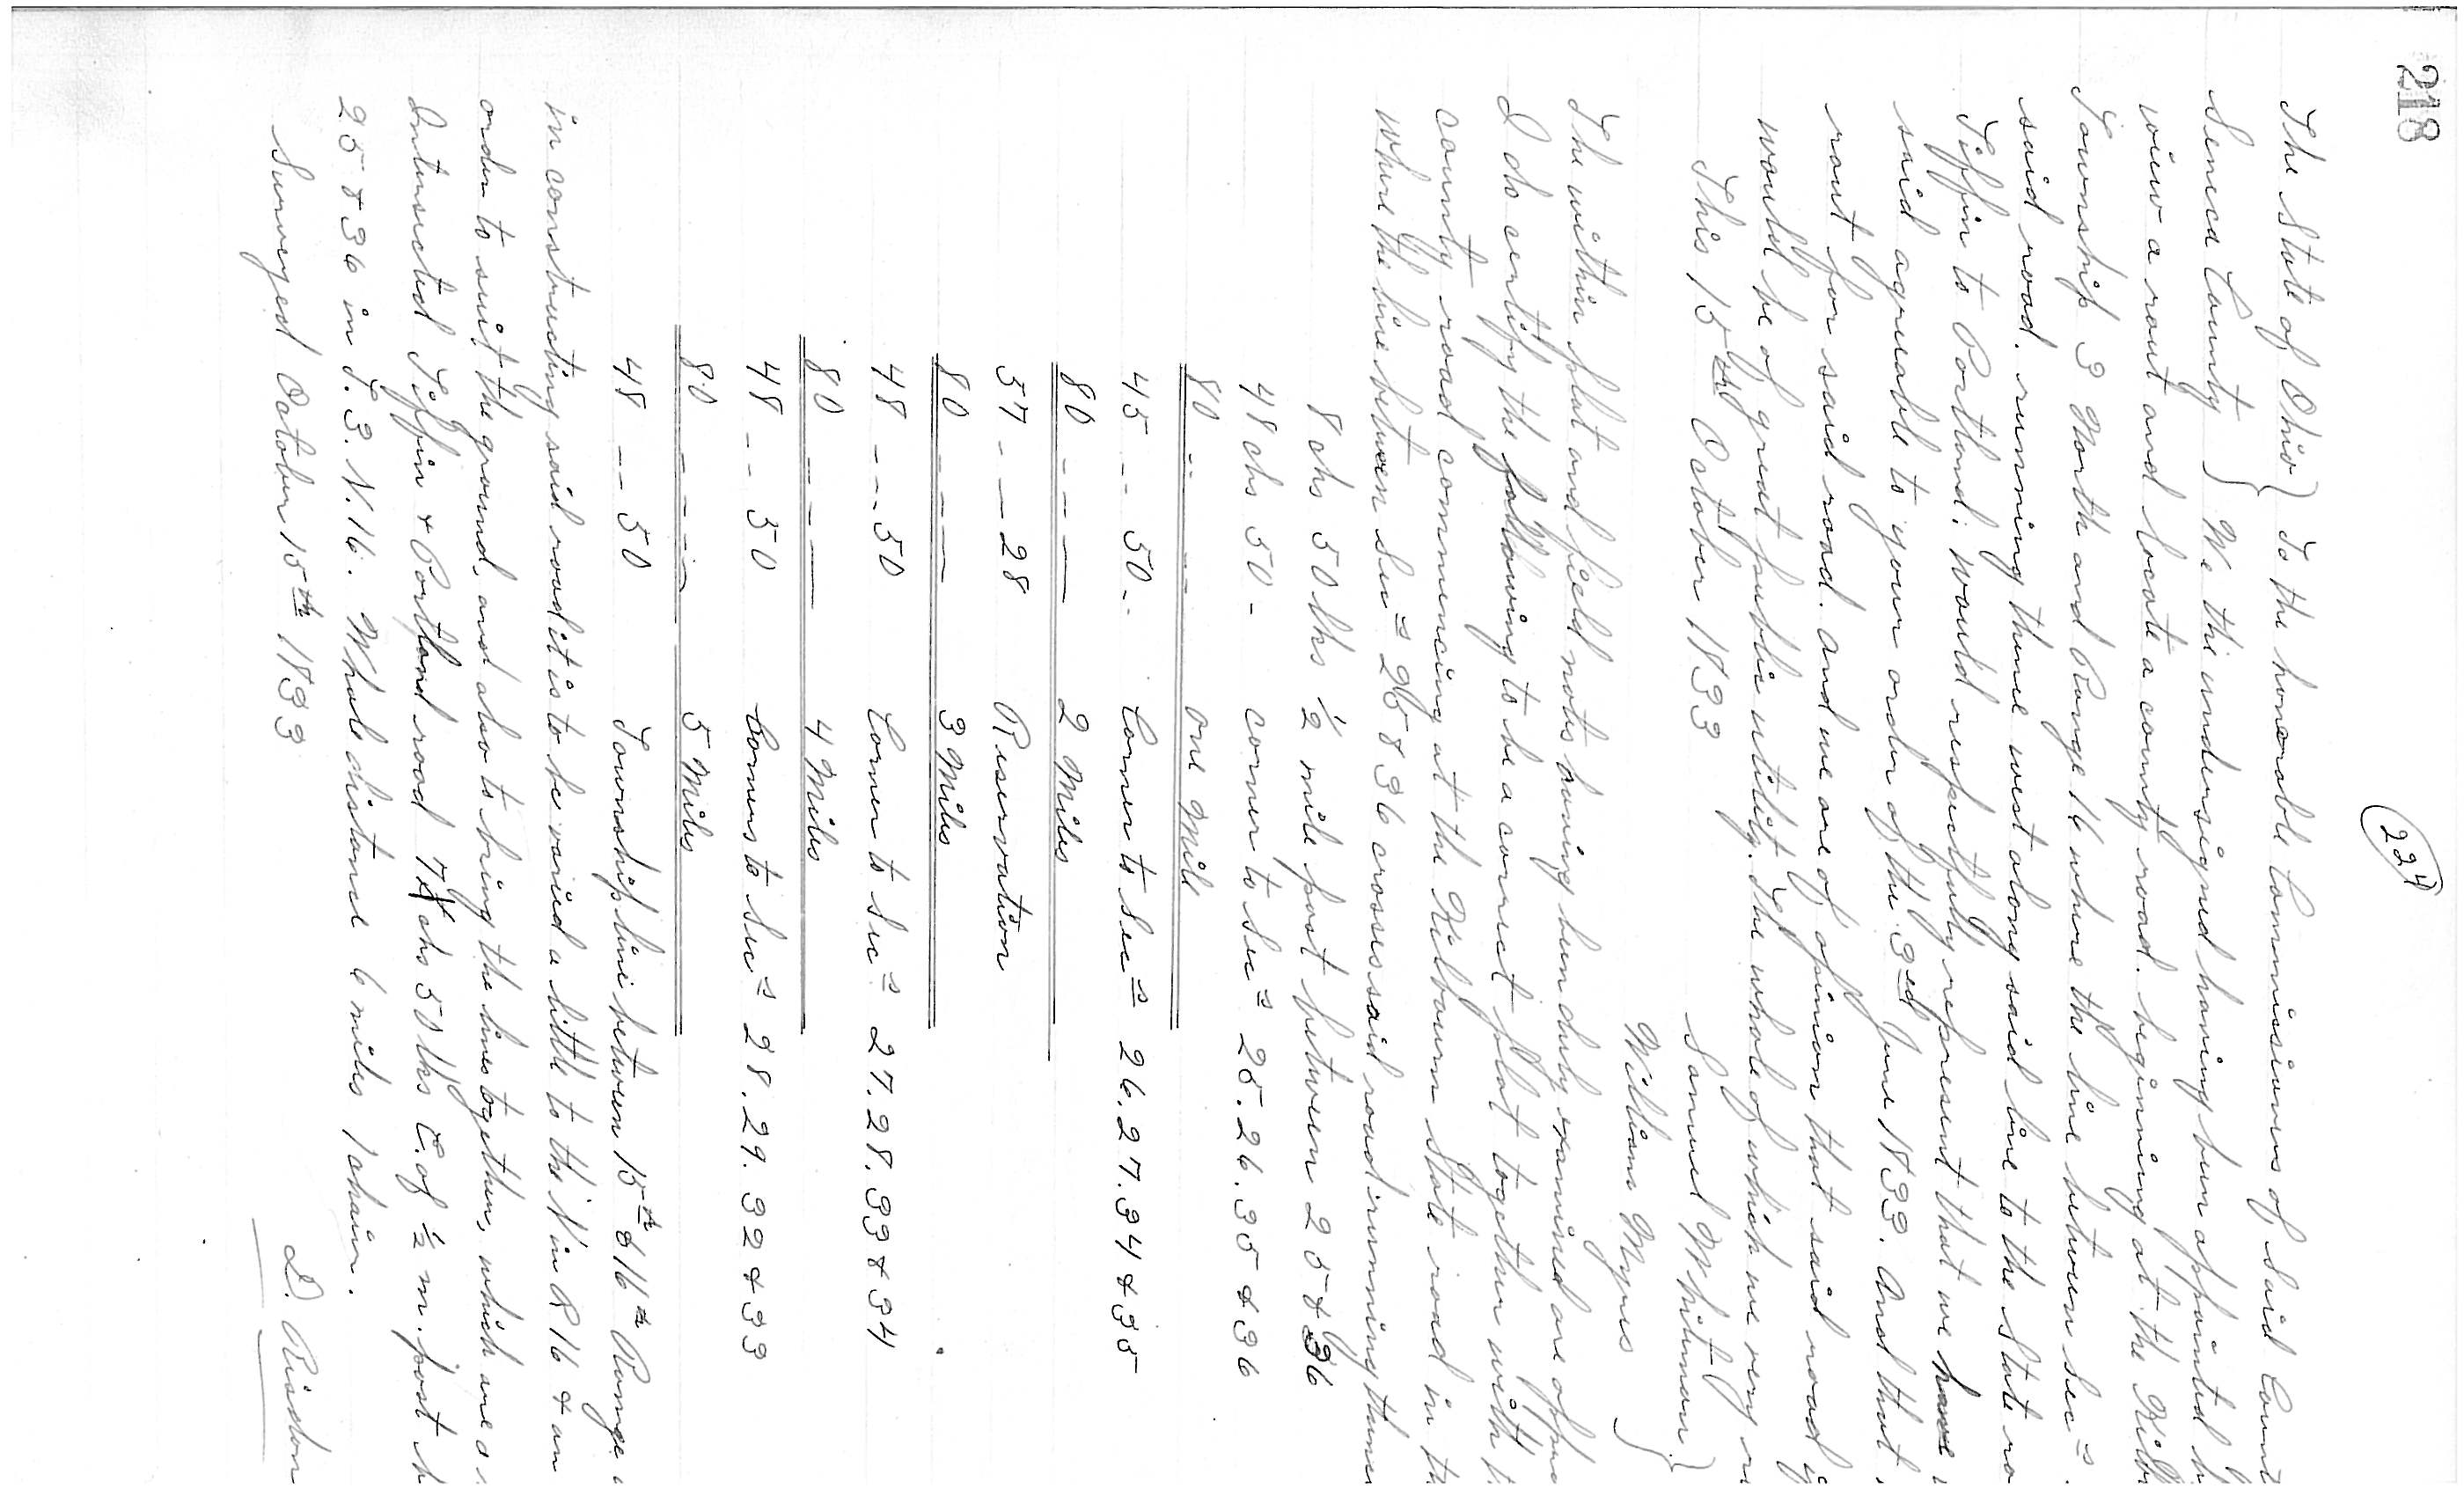 218
224
The State of Ohio } To the honorable Commissioners of said Count
Seneca County } We the undersigned having been appointed b
view a rout and locate a county road. beginning at the Kilb
Township 3 North and Range 16 where the line between sec=s
said road. running thence west along said line to the State ro
Tiffin to Portland. would respectfully represent that we have
said agreable to your order of the 3ed June 1833. And that
rout for said road. and we are of opinion that said road i
would be of great public utility. The whole of which we very r
This 15th October 1833
Samuel Whitman }
William Myers }
The within plat and field notes having been duly examined are appro
I do certify the following to be a correct plat together with t
county road commencing at the Kilbourn State road in th
where the line between Sec=s 25 & 36 crosses said road running thence
8 chs 50 lks ½ mile post between 25 & 36
48 chs 50 - corner to Sec=s 25. 26. 35 & 36
80 -- -- one Mile
45 -- 50 -- Corner to Sec=s 26. 27. 34 & 35
80 - - - - 2 Miles
57 - - - 28 Reservation
80 - - - - 3 Miles
48 - - - 50 Corner to Sec=s 27. 28. 33 & 34
80 - - - - 4 Miles
48 - - 50 Corners to Sec=s 28. 29. 32 & 33
80 - - - - 5 Miles
48 - - 50 Township line between 15th & 16th Range
in constructing said road it is to be varied a little to the N in R 16 & an
order to suit the ground, and also to bring the lines together, which are
Intersected Tiffin & Portland road 7 chs 50 lks E. of ½ m. post
25 & 36 in T. 3. N. 16. Whole distance 6 miles 1 chain.
Surveyed October 15th 1833
D. Risdon